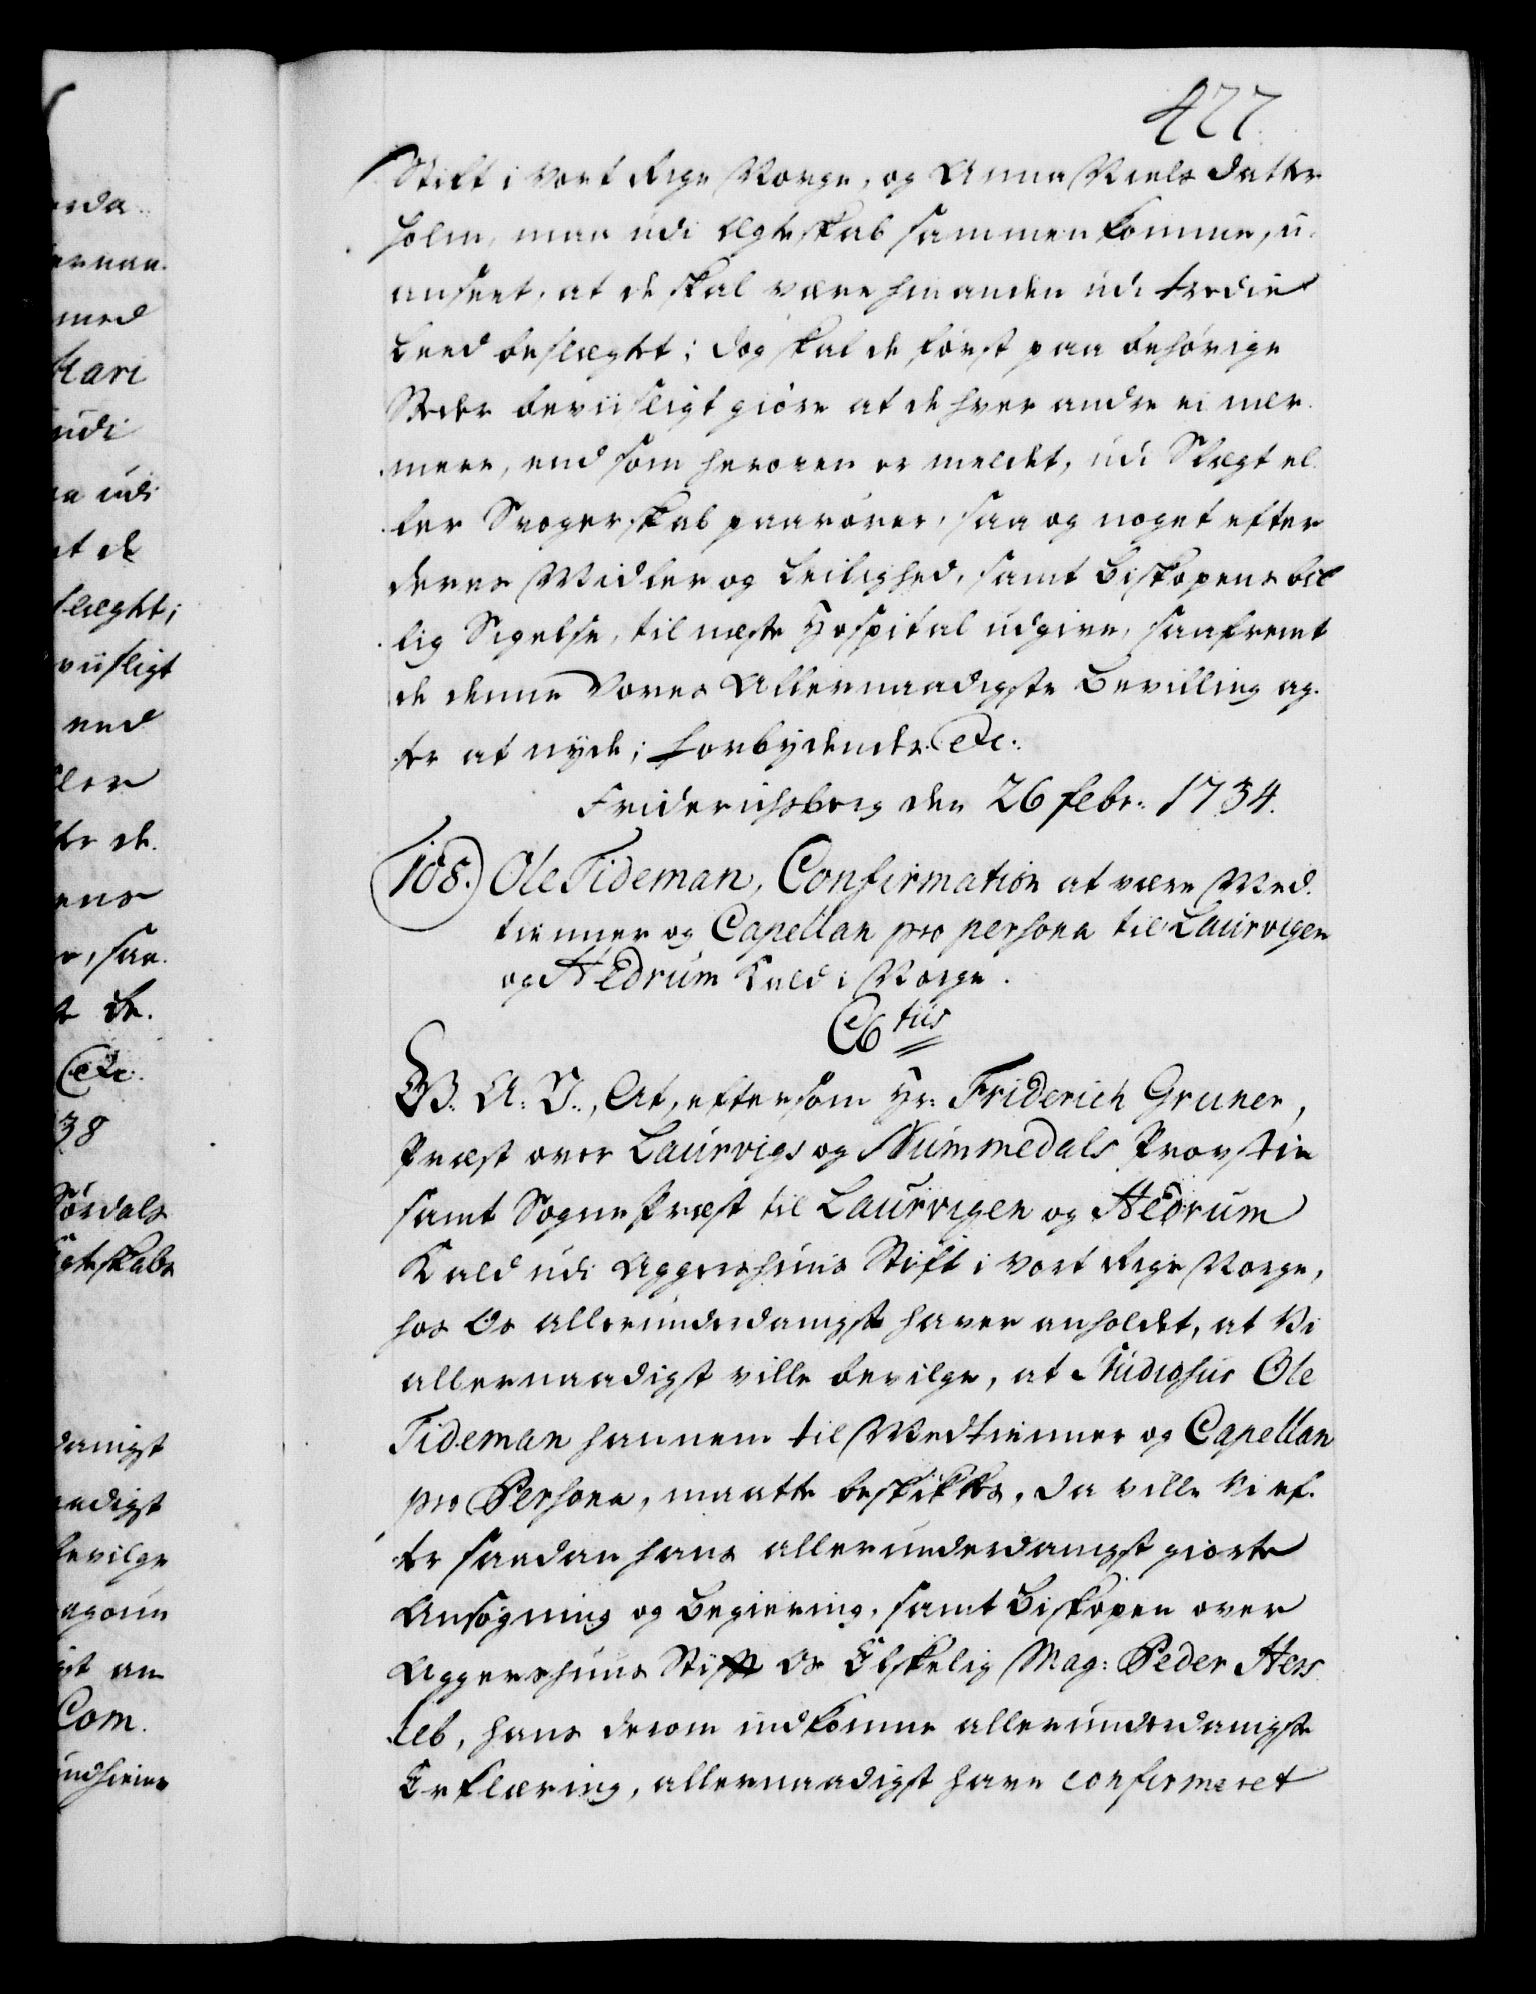 477.
Stift i vort Rige Norge, og Anna Niels datter
Holm, maa udi Ægteskab sammenkomme, u-
anseet, at de skal være hinanden udi tredie
Leed beslægtet; dog skal de først paa behørige
Steder beviisligt giøre at de hver andre ei nær-
mere, end som heroven er meldet, udi Slægt el-
ler Svogerskab paarører, saa og noget efter
deres Midler og Leilighed, samt Biskopens bil-
lig Sigelse, til næste Hospital udgive, saafremt
de denne Vores Allernaadigste Bevilling ag-
ter at nyde; Forbydendes etc:
Friderichsberg den 26 febr: 1734.
108. Ole Tideman, Confirmation at være Med-
tienner og Capellan pro persona til Laurvigen
og Hedrum Kald i Norge.
C6tus
G. A. V., At, eftersom Hr: Friderich Gruner,
Præst over Laurvigs og Nummedals Provstie
samt Sogne Præst til Laurvigen og Hedrum
Kald udi Aggershuus Stift i vort Rige Norge,
hos Os allerunderdanigst haver anholdet, at Vi
allernaadigst ville bevilge, at Studiosus Ole
Tideman hannem til Medtienner og Capellan
pro Persona, maatte beskikkes, da ville Vi ef-
ter saadan hans allerunderdanigst giorte
Ansøgning og Begiering, samt Biskopen over
Aggershuus Stift Os Elskelig Mag: Peder Hers-
leb, hans derom indkomne allerunderdanigste
Erklæring, allernaadigst have confirmeret